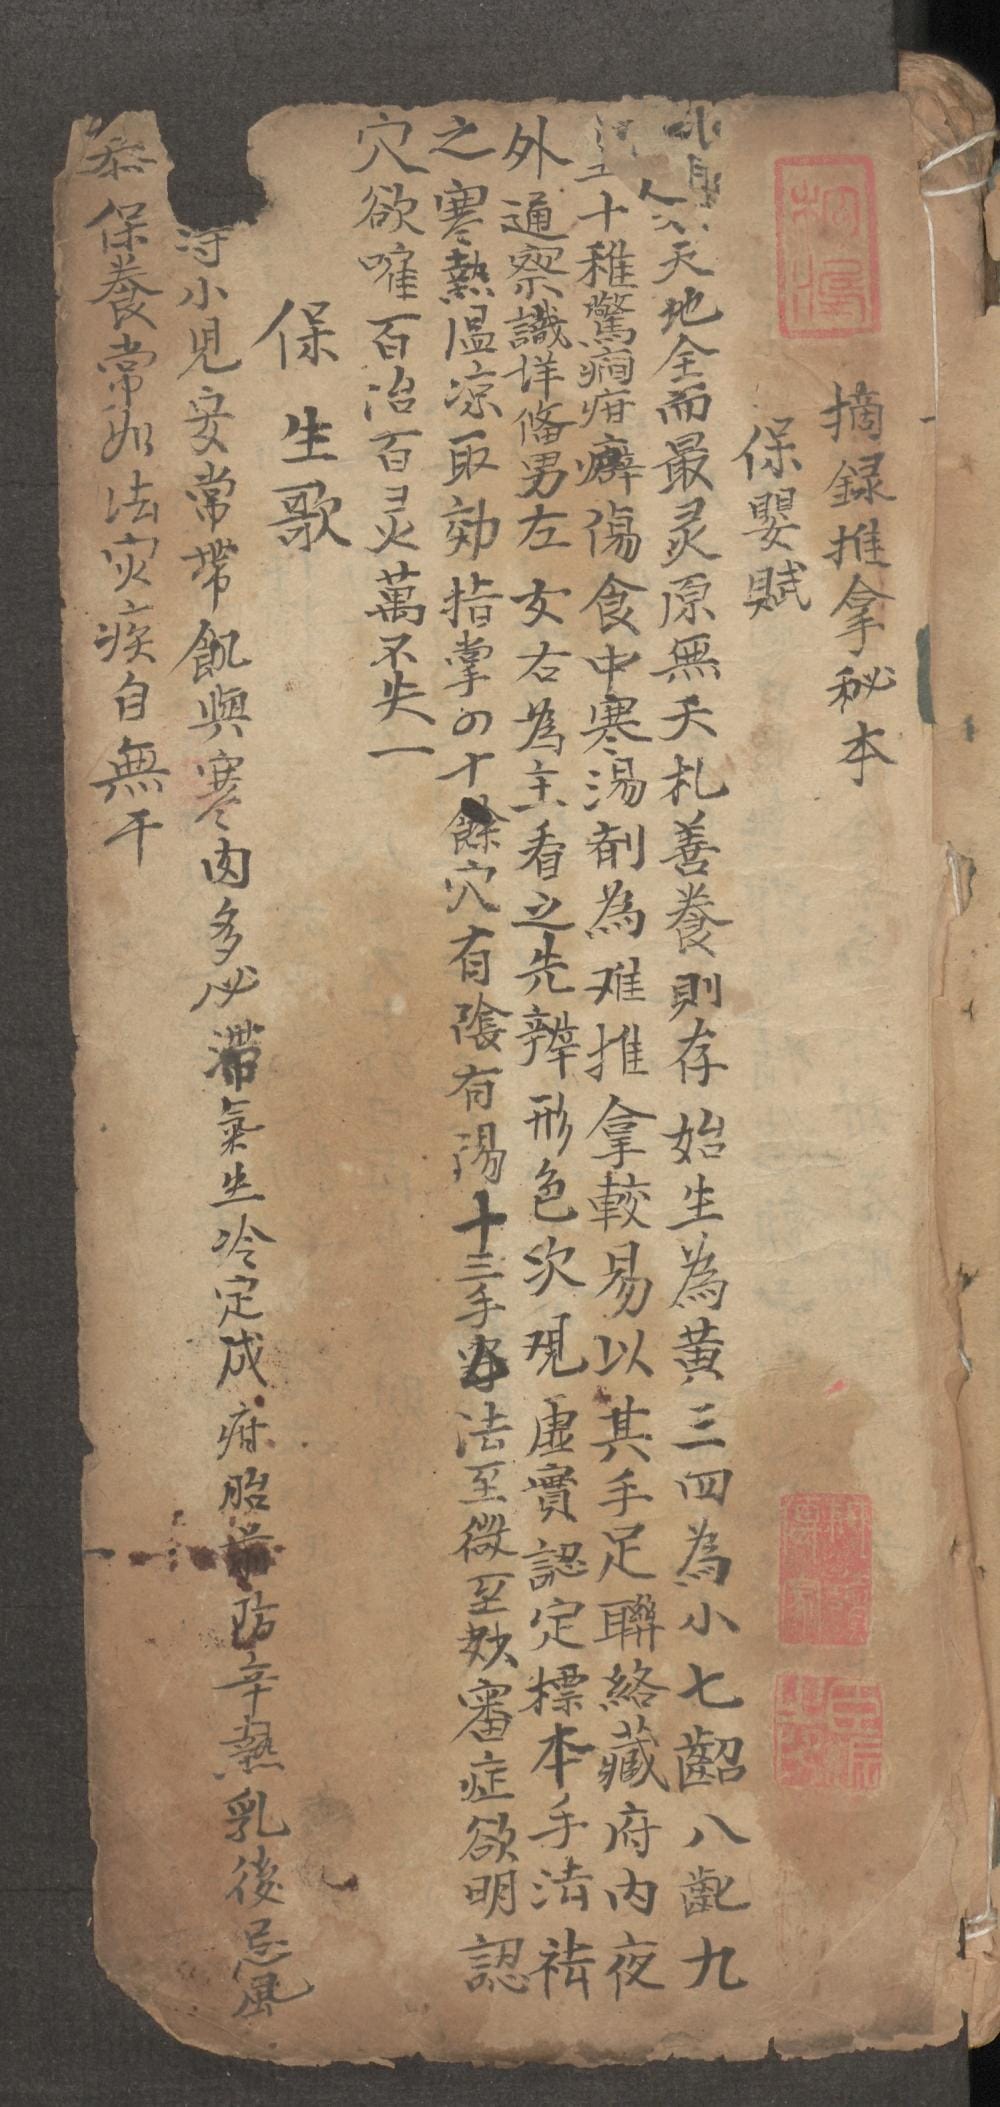 摘録推拿秘本
保嬰賦
人天地全而最灵原無夭札善養則存始生為黃三四為小七齠八齔九
十稚驚癇疳癖傷食中寒湯剤為难推拿較易以其手足聯絡藏府内夜
外通察識详俻男左女右為主看之先辨形色次观虚實認定標本手法祛
之寒熱温凉取効指掌四十餘穴有陰有陽十三手法至微至妙審症欲明認
穴欲嚾百治百灵萬不失一
保生歌
小児安常帶飢與寒肉多必滞氣生冷定成疳胎前防辛熱乳後忌風
保養常如法灾疾自無干